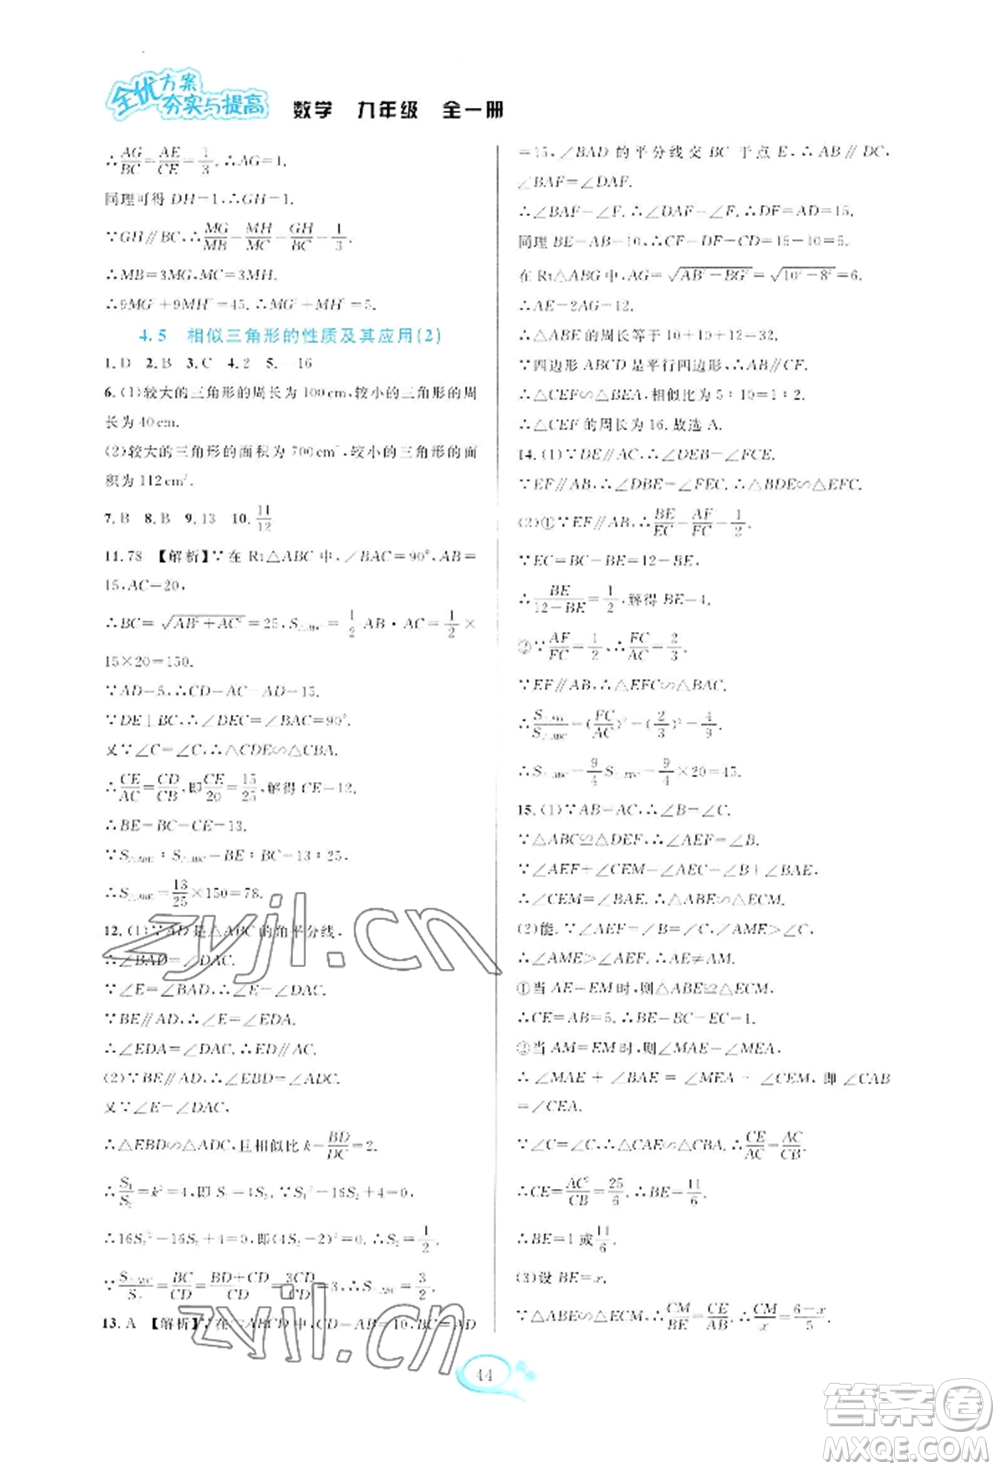 全优方案
夯实与提高
数学 九年级 全一册
∴AG/BC=AE/CE=1/3.∴AG=1.
同理可得 DH=1,∴GH=1.
∵GH∥BC,∴MG/MB=MH/MC=GH/BC=1/3.
∴MB=3MG,MC=3MH.
∴9MG²+9MH²=45.∴MG²+MH²=5.
4.5 相似三角形的性质及其应用(2)
1.D 2.B 3.C 4.2 5.
6.(1)较大的三角形的周长为100cm,较小的三角形的周
长为40cm.
(2)较大的三角形的面积为700cm²,较小的三角形的面
积为112cm².
7.B 8.B 9.13 10.11/12
11.78 【解析】∵在Rt△ABC中,∠BAC=90°,AB=
15,AC=20,
∴BC=√(AB²+AC²)=25,S△ABC=1/2 AB·AC=1/2×
15×20=150.
∵AD=5,∴CD=AC-AD=15.
∵DE⊥BC,∴∠DEC=∠BAC=90°.
又∵∠C=∠C,∴△CDE∽△CBA.
∴CE/AC=CD/CB,∴CE/20=15/25,解得CE=12,
∴BE=BC-CE=13.
∵S△ABE:S△ABC=BE:BC=13:25,
∴S△ABE=13/25×150=78.
12.(1)∵AD是△ABC的角平分线,
∴∠BAD=∠DAC.
∵∠E=∠BAD,∴∠E=∠DAC.
∵BE∥AD,∴∠E=∠EDA.
∴∠EDA=∠DAC.∴ED∥AC.
(2)∵BE∥AD,∴∠EBD=∠ADC.
又∵∠E=∠DAC,
∴△EBD∽△ADC,且相似比k=BD/DC=2.
∴S₁/S₂=k²=4,即S₁=4S₂.∵S₁²-16S₂+4=0,
∴16S₂²-16S₂+4=0,即(4S₂-2)²=0.∴S₂=1/2.
∵S△ABC/S₂=BC/CD=(BD+CD)/CD=3CD/CD=3,∴S△ABC=3/2.
13.A 【解析】∵在▱ABCD中,CD=AB=10,BC=AD
=15,∠BAD的平分线交BC于点E,∴AB∥DC,
∠BAF=∠DAF.
∴∠BAF=∠F.∴∠DAF=∠F.∴DF=AD=15.
同理BE=AB=10,∴CF=DF-CD=15-10=5.
在Rt△ABG中,∴AG=√(AB²-BG²)=√(10²-8²)=6.
∴AE=2AG=12.
∴△ABE的周长等于10+10+12=32.
∵四边形ABCD是平行四边形,
∴△CEF∽△BEA,相似比为5:10=1:2.
∴△CEF的周长为16.故选A.
14.(1)∵DE∥AC,∴∠DEB=∠FCE.
∵EF∥AB,∴∠DBE=∠FEC.∴△BDE∽△EFC.
(2)①∵EF∥AB,∴BE/EC=AF/FC=1/2.
∵EC=BC-BE=12-BE,
∴BE/(12-BE)=1/2,解得BE=4.
②∵AF/FC=1/2,∴FC/AC=2/3.
∵EF∥AB,∴△EFC∽△BAC.
∴S△EFC/S△ABC=(FC/AC)²=(2/3)²=4/9.
∴S△ABC=9/4 S△EFC=9/4×20=45.
15.(1)∵AB=AC,∴∠B=∠C.
∵△ABC≌△DEF,∴∠AEF=∠B.
∵∠AEF+∠CEM=∠AEC=∠B+∠BAE,
∴∠CEM=∠BAE.∴△ABE∽△ECM.
(2)能.∵∠AEF=∠B=∠C,∠AME>∠C,
∴∠AME>∠AEF.∴AE≠AM.
①当AE=EM时,则△ABE≌△ECM,
∴CE=AB=5.∴BE=BC-EC=1.
②当AM=EM时,则∠MAE=∠MEA.
∴∠MAE+∠BAE=∠MEA+∠CEM,即∠CAB
=∠CEA.
∵∠C=∠C,∴△CAE∽△CBA.∴CE/AC=AC/CB.
∴CE=AC²/CB=25/6.∴BE=11/6.
∴BE=1或11/6.
(3)设BE=x.
∵△ABE∽△ECM,∴CM/BE=CE/AB.∴CM/x=(6-x)/5.
44
zyjl.cn
zyjl.cn
答案圈
MXQE.COM